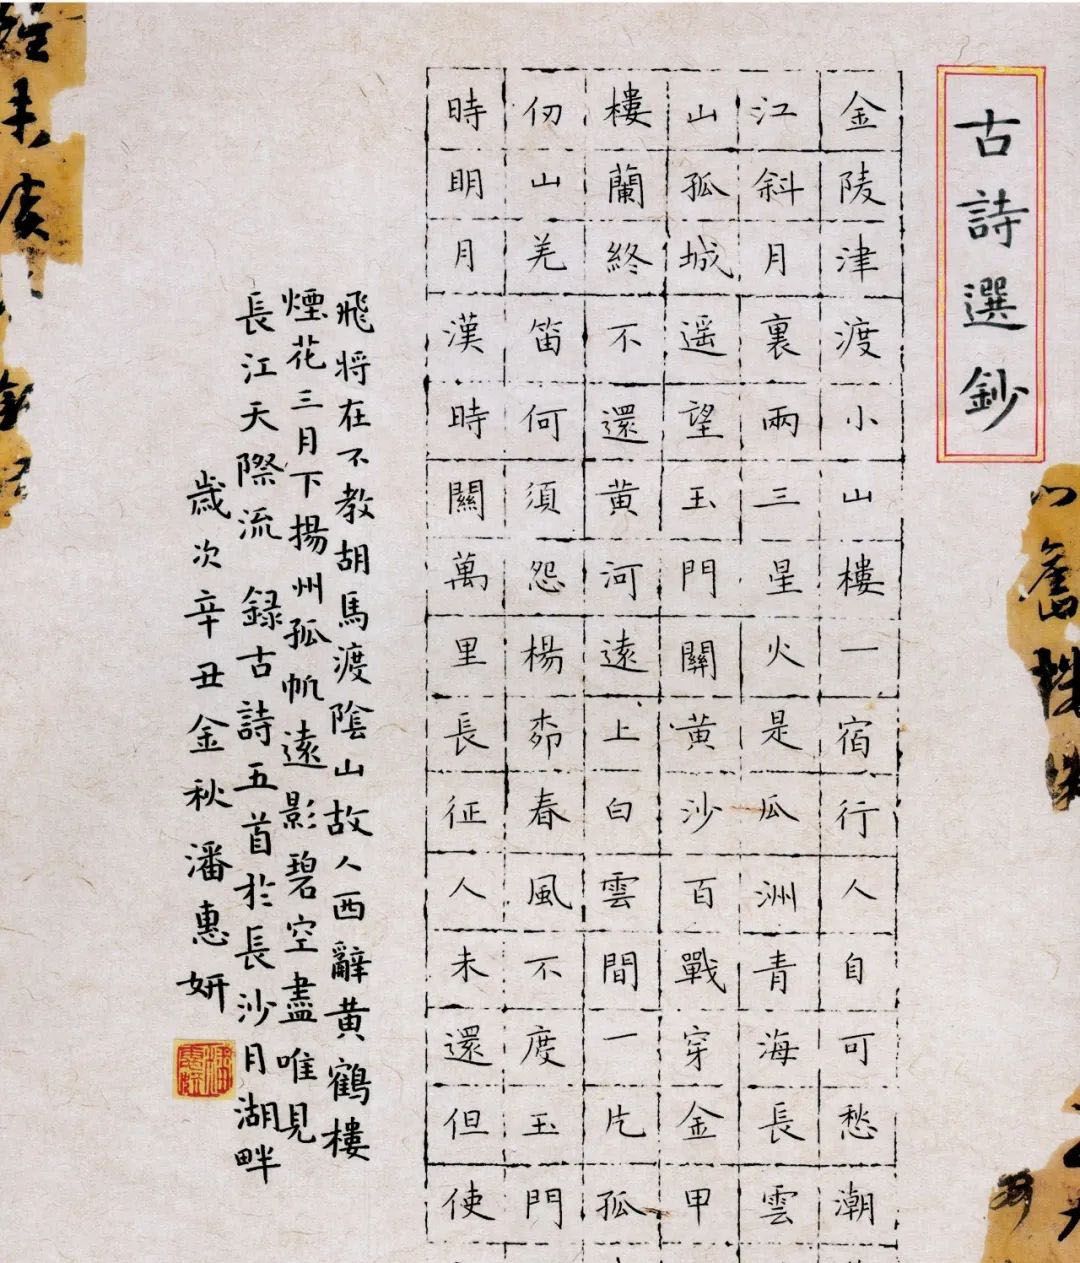 古詩選鈔
金陵津渡小山樓一宿行人自可愁潮
江斜月裏兩三星火是瓜洲青海長雲
山孤城遥望玉門關黄沙百戰穿金甲
樓蘭終不還黄河遠上白雲間一片孤
仞山羌笛何須怨楊桺春風不度玉門
時明月漢時關萬里長征人未還但使
飛將在不教胡馬渡陰山故人西辭黄鶴樓
煙花三月下揚州孤帆遠影碧空盡唯見
長江天際流 録古詩五首於長沙月湖畔
歲次辛丑金秋潘惠妍